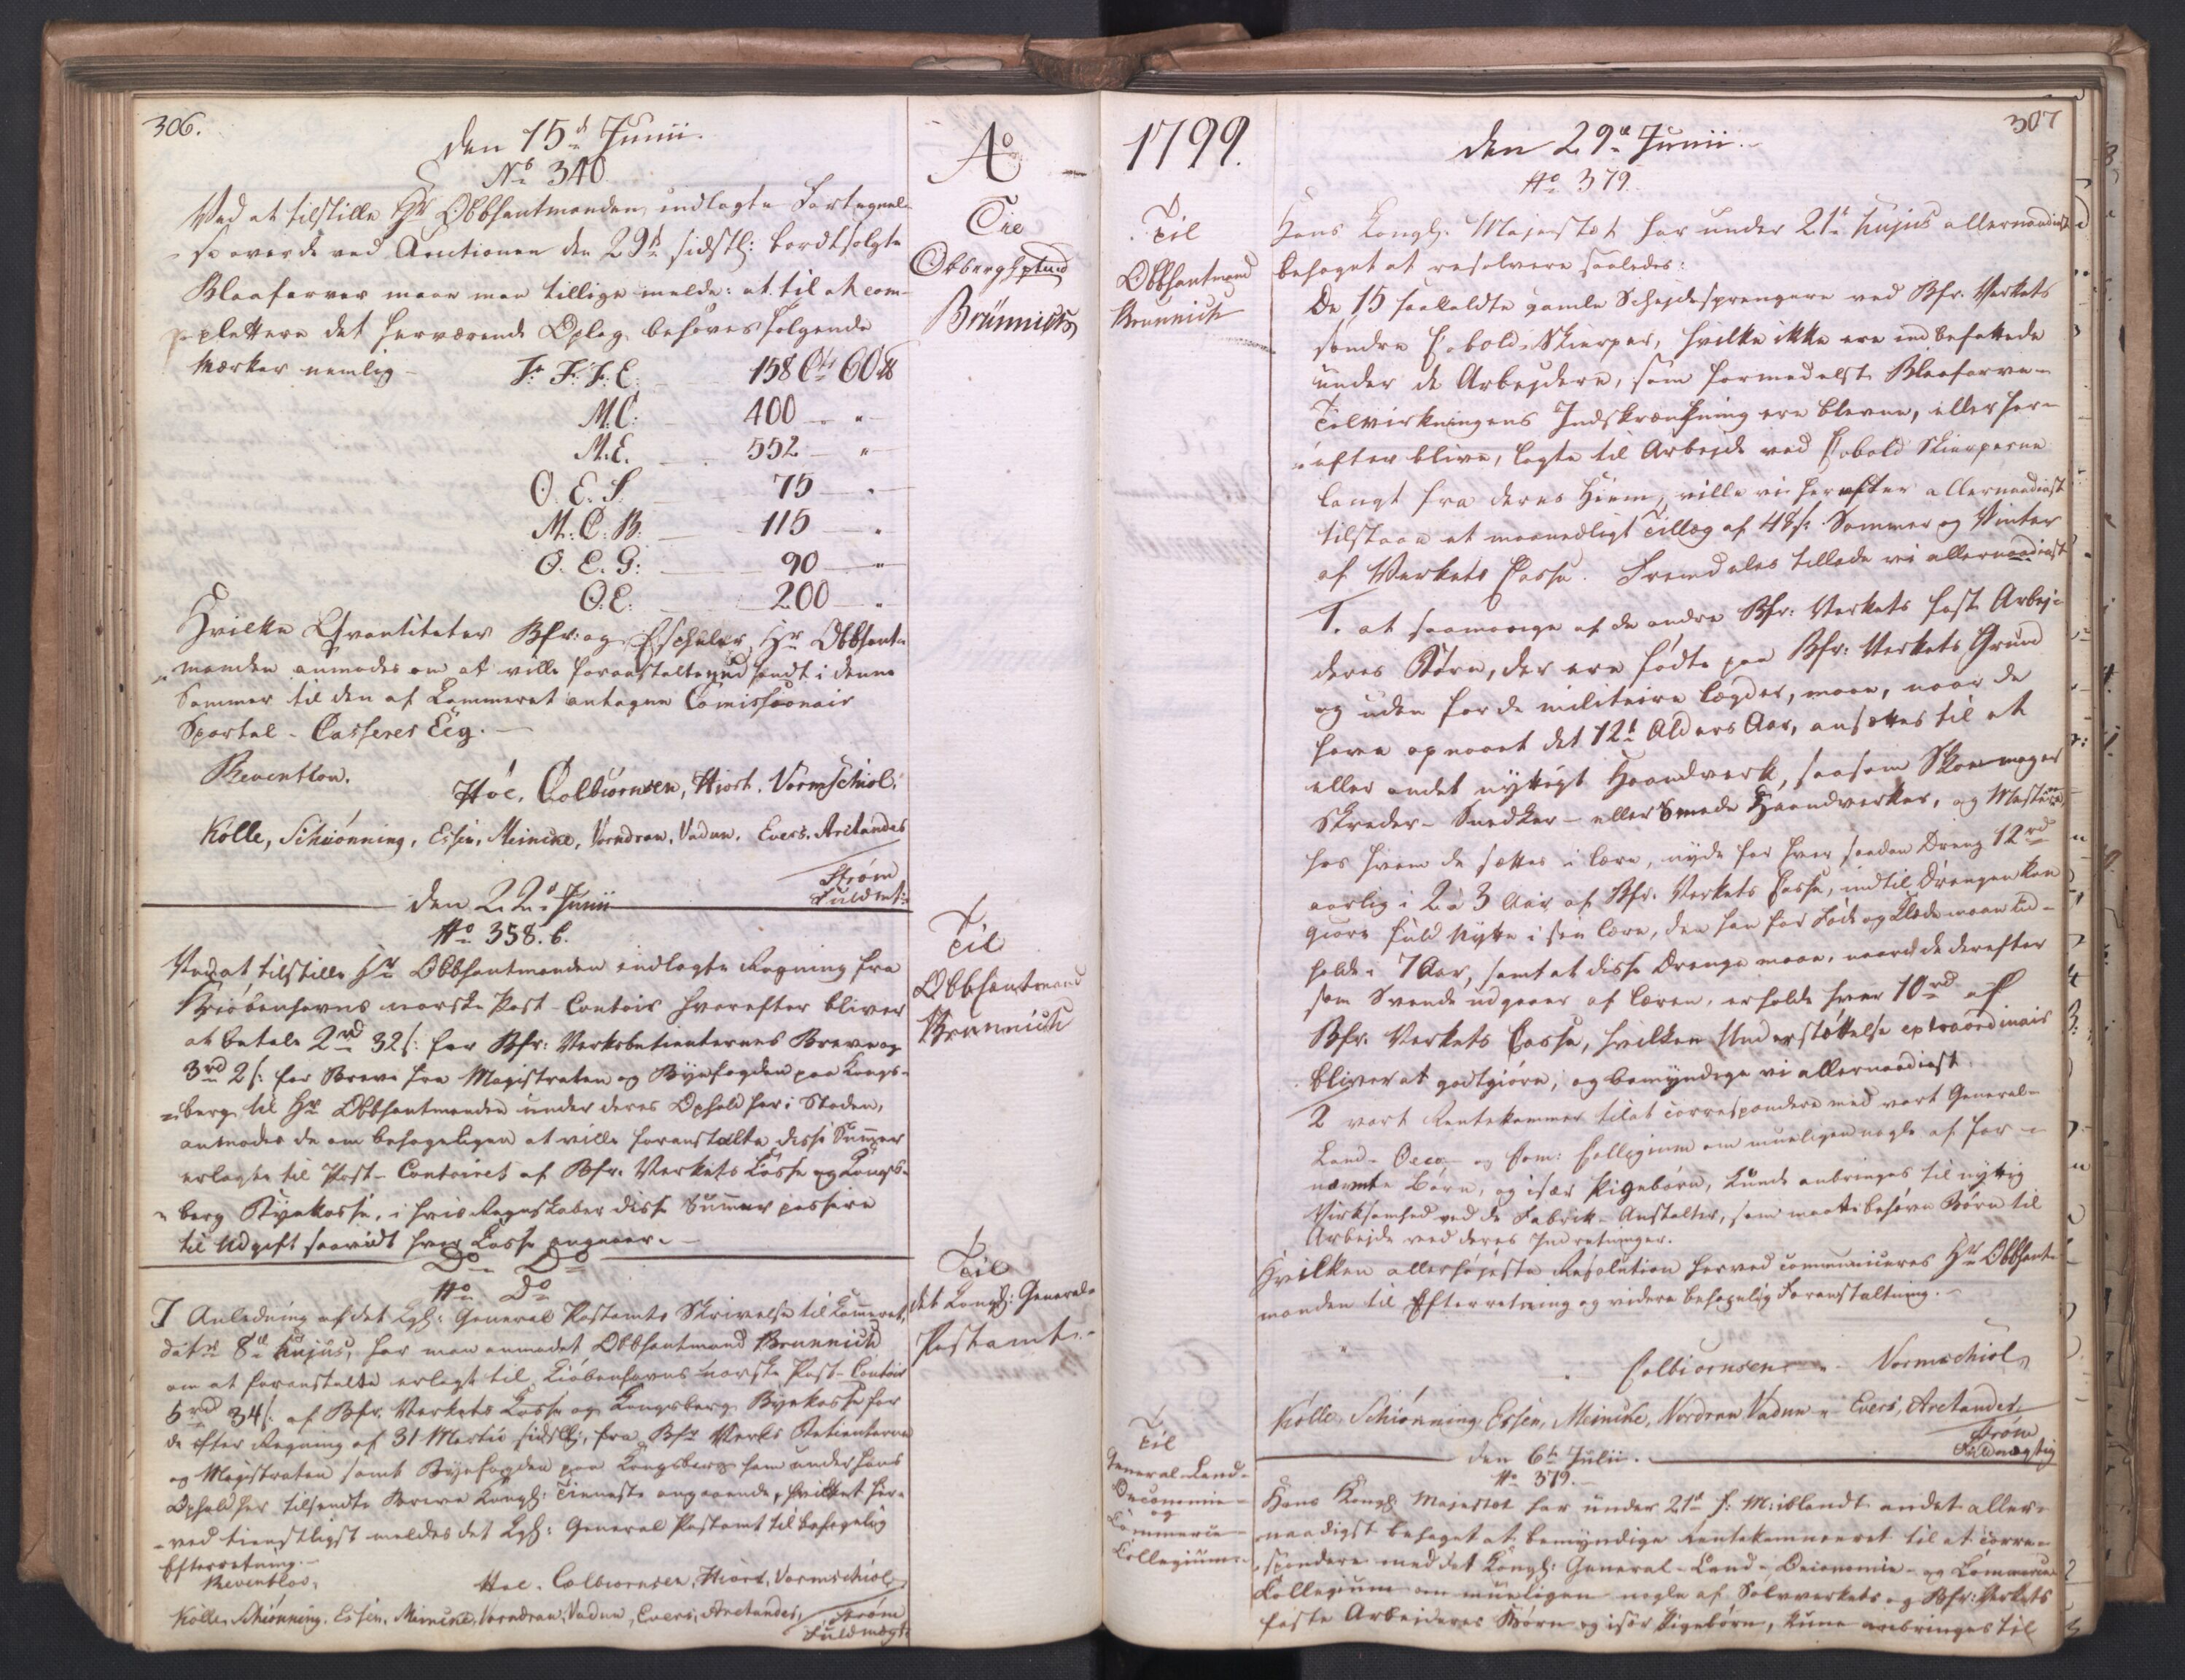 306.
den 15de Junii.
No 340.
Ao
Til
Obberghptmd
Brünnich
Ved at tilstille Hr Obbhautmanden indlagte Fortegnel-
se over de ved Auctionen den 29de sidstl: bordtsolgte
Blaafarver maae man tillige melde: at til at com-
plettere det herværende Oplag behøves følgende
Mærker nemlig F. F. F. E. 158 Ctr 60 ℔
M. C. 400 "
M. E. 552 "
O. E. S. 75 "
M. C. B. 115 "
O. E. G. 90 "
O. E. 200 "
Hvilke Qvantiteter Bfr: og Eschuler Hr Obbhaut-
manden anmodes om at ville foranstalte nedsendt i denne
Sommer til den af Kammeret antagne Comissionair
Sportel-Casserer Eeg.
Reventlow. Høe, Colbiørnsen, Hiort, Vormschiol.
Kølle, Schiønning, Essen, Meincke, Vorndran, Vadum, Evers, Arctander
Strøm
Fuldmt:
den 22de Junii
No 358. b.
Til
Obbhautmand
Brünnich
Ved at tilstille Hr Obbhautmanden indlagte Regning fra
Kiøbenhavns norske Post-Contoir hvorefter bliver
at betale 2 rd 32 s: for Bfr: Verksbetienternes Breve og
3 rd 2 s: for Breve fra Magistraten og Byefogden paa Kongs-
berg til Hr Obbhautmanden under deres Ophold her i Staden,
anmodes de om behageligen at ville foranstalte disse Summer
erlagte til Post-Contoiret af Bfr. Verkets Casse og Kongs-
berg Byekasse, i hvis Regnskaber disse Summer passere
til Udgift saavidt hver Casse angaaer.
Do Do
No Do
Til
det Kongl: General-
Postamt.
I Anledning af det Kgl: General Postamts Skrivelse til Kameret,
dat: 8de hujus, har man anmodet Obbhautmand Brunnich
om at foranstalte erlagt til Kiøbenhavns norske Post-Contoir
5 rd 34 s. af Bfr. Verkets Casse og Kongsberg Byekasse for
de efter Regning af 31 Martii sidstl:, fra Bfr Verks Betienterne
og Magistraten samt Byefogden paa Kongsberg ham under hans
Ophold her tilsendte Breve Kongl: Tieneste angaaende, hvilket her-
ved tienstligst meldes det Kgl: General Postamt til behagelig
Efterretning.
Reventlow, Høe. Colbiørnsen, Hiort, Vormschiol
Kølle, Schiønning, Essen, Meincke, Vorndran, Vadum, Evers, Arctander,
Strøm
Fuldmægt:
1799.
307
den 29de Junii.
No 379.
Til
Obbhautmand
Brunnich
Hans Kongl. Majestæt har under 21de hujus allernaadigst
behaget at resolvere saaledes:
De 15 saakaldte gamle Schejdesprengere ved Bfr. Verkets
søndre Cobold-Skierper, hvilke ikke ere indbefattede
under de Arbejdere, som formedelst Blaafarve-
Tilvirkningens Indskrænkning ere blevne, eller her-
efter blive, lagte til Arbejde ved Cobold Skierperne
langt fra deres Hiem, ville vi herefter allernaadigst
tilstaae et maanedligt Tillæg af 48 s. Sommer og Vinter
af Verkets Casse. Fremdeles tillade vi allernaadigst
1. at saamange af de andre Bfr: Verkets faste Arbej-
deres Børn, der ere fødte paa Bfr: Verkets Grund
og uden for de militaire Lægder, maae, naar de
have opnaaet det 12te Alders Aar, ansættes til et
eller andet nyttigt Haandverk, saasom Skoemager
Skreder- Snedker- eller Smede Haandverker, og Mesterne,
hos hvem de sættes i Lære, nyde for hver saadan Dreng 12 rd
aarlig i 2 à 3 Aar af Bfr. Verkets Casse, indtil Drengen kan
giøre fuld Nytte i sen Lære, den han for Føde og Klæde maae ud-
holde i 7 Aar, samt at disse Drenge maae, naar de derefter
som Svende udgaaer af Læren, erholde hver 10 rd af
Bfr. Verkets Casse, hvilken Understøttelse extraordinair
bliver at godtgiøre, og bemyndige vi allernaadigst
2 vort Rentekammer til at correspondere med vort General-
Land- Oeco- og Com: Collegium om mueligen nogle af for-
nævnte Børn, og især Pigebørn, kunde anbringes til nyttig
Virksomhed ved de Fabrik-Anstalter, som maatte behøve Børn til
Arbejde ved deres Indretninger.
Hvilken allerhøjeste Resolution herved communiceres Hr Obbhaut-
manden til Efterretning og videre behagelig Foranstaltning.
Colbiørnsen Vormschiol
Kølle, Schiønning, Essen, Meincke, Vordran, Vadum, Evers, Arctander
Strøm
Fuldmægtig
den 6te Julii.
No 379.
Til
General-Land-
Oeconomie-
og
Commerce-
Collegium
Hans Kongl Majestæt har under 21de f: M: iblandt andet aller-
naadigst behaget at bemyndige Rentekammeret til at corre-
spondere med det Kongl: General-Land-Oeconomie- og Commerce
Collegium om mueligen nogle af Sølvverkets og Bfr: Verkets
faste Arbeideres Børn og især Pigebørn, kunne anbringes til